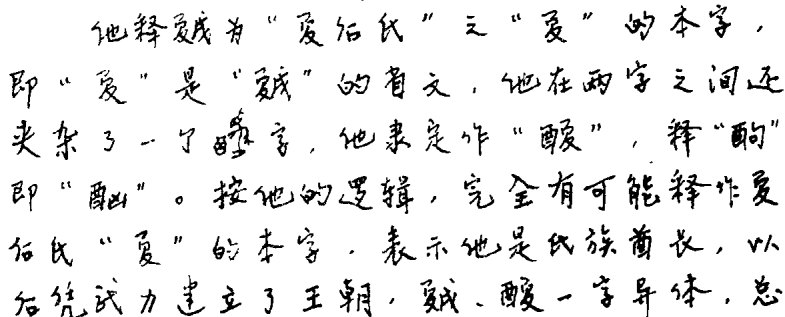 他释戛为“夏后氏”之“夏”的本字，
即“夏”是“戛”的省文，他在两字之间还
夹杂了一个字，他隶定作“酭”，释“酌”
即“酗”。按他的逻辑，完全有可能释作夏
后氏“夏”的本字，表示他是氏族酋长，以
后凭武力建立了王朝，一字异体，总